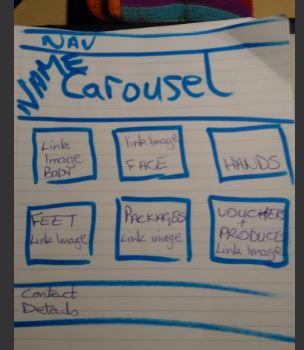 NAV
NAME
Carousel
Link
Image
BODY
Link Image
FACE
HANDS
FEET
Link Image
PACKAGES
Link image
VOUCHERS
+
PRODUCTS
Link Image
Contact
Details